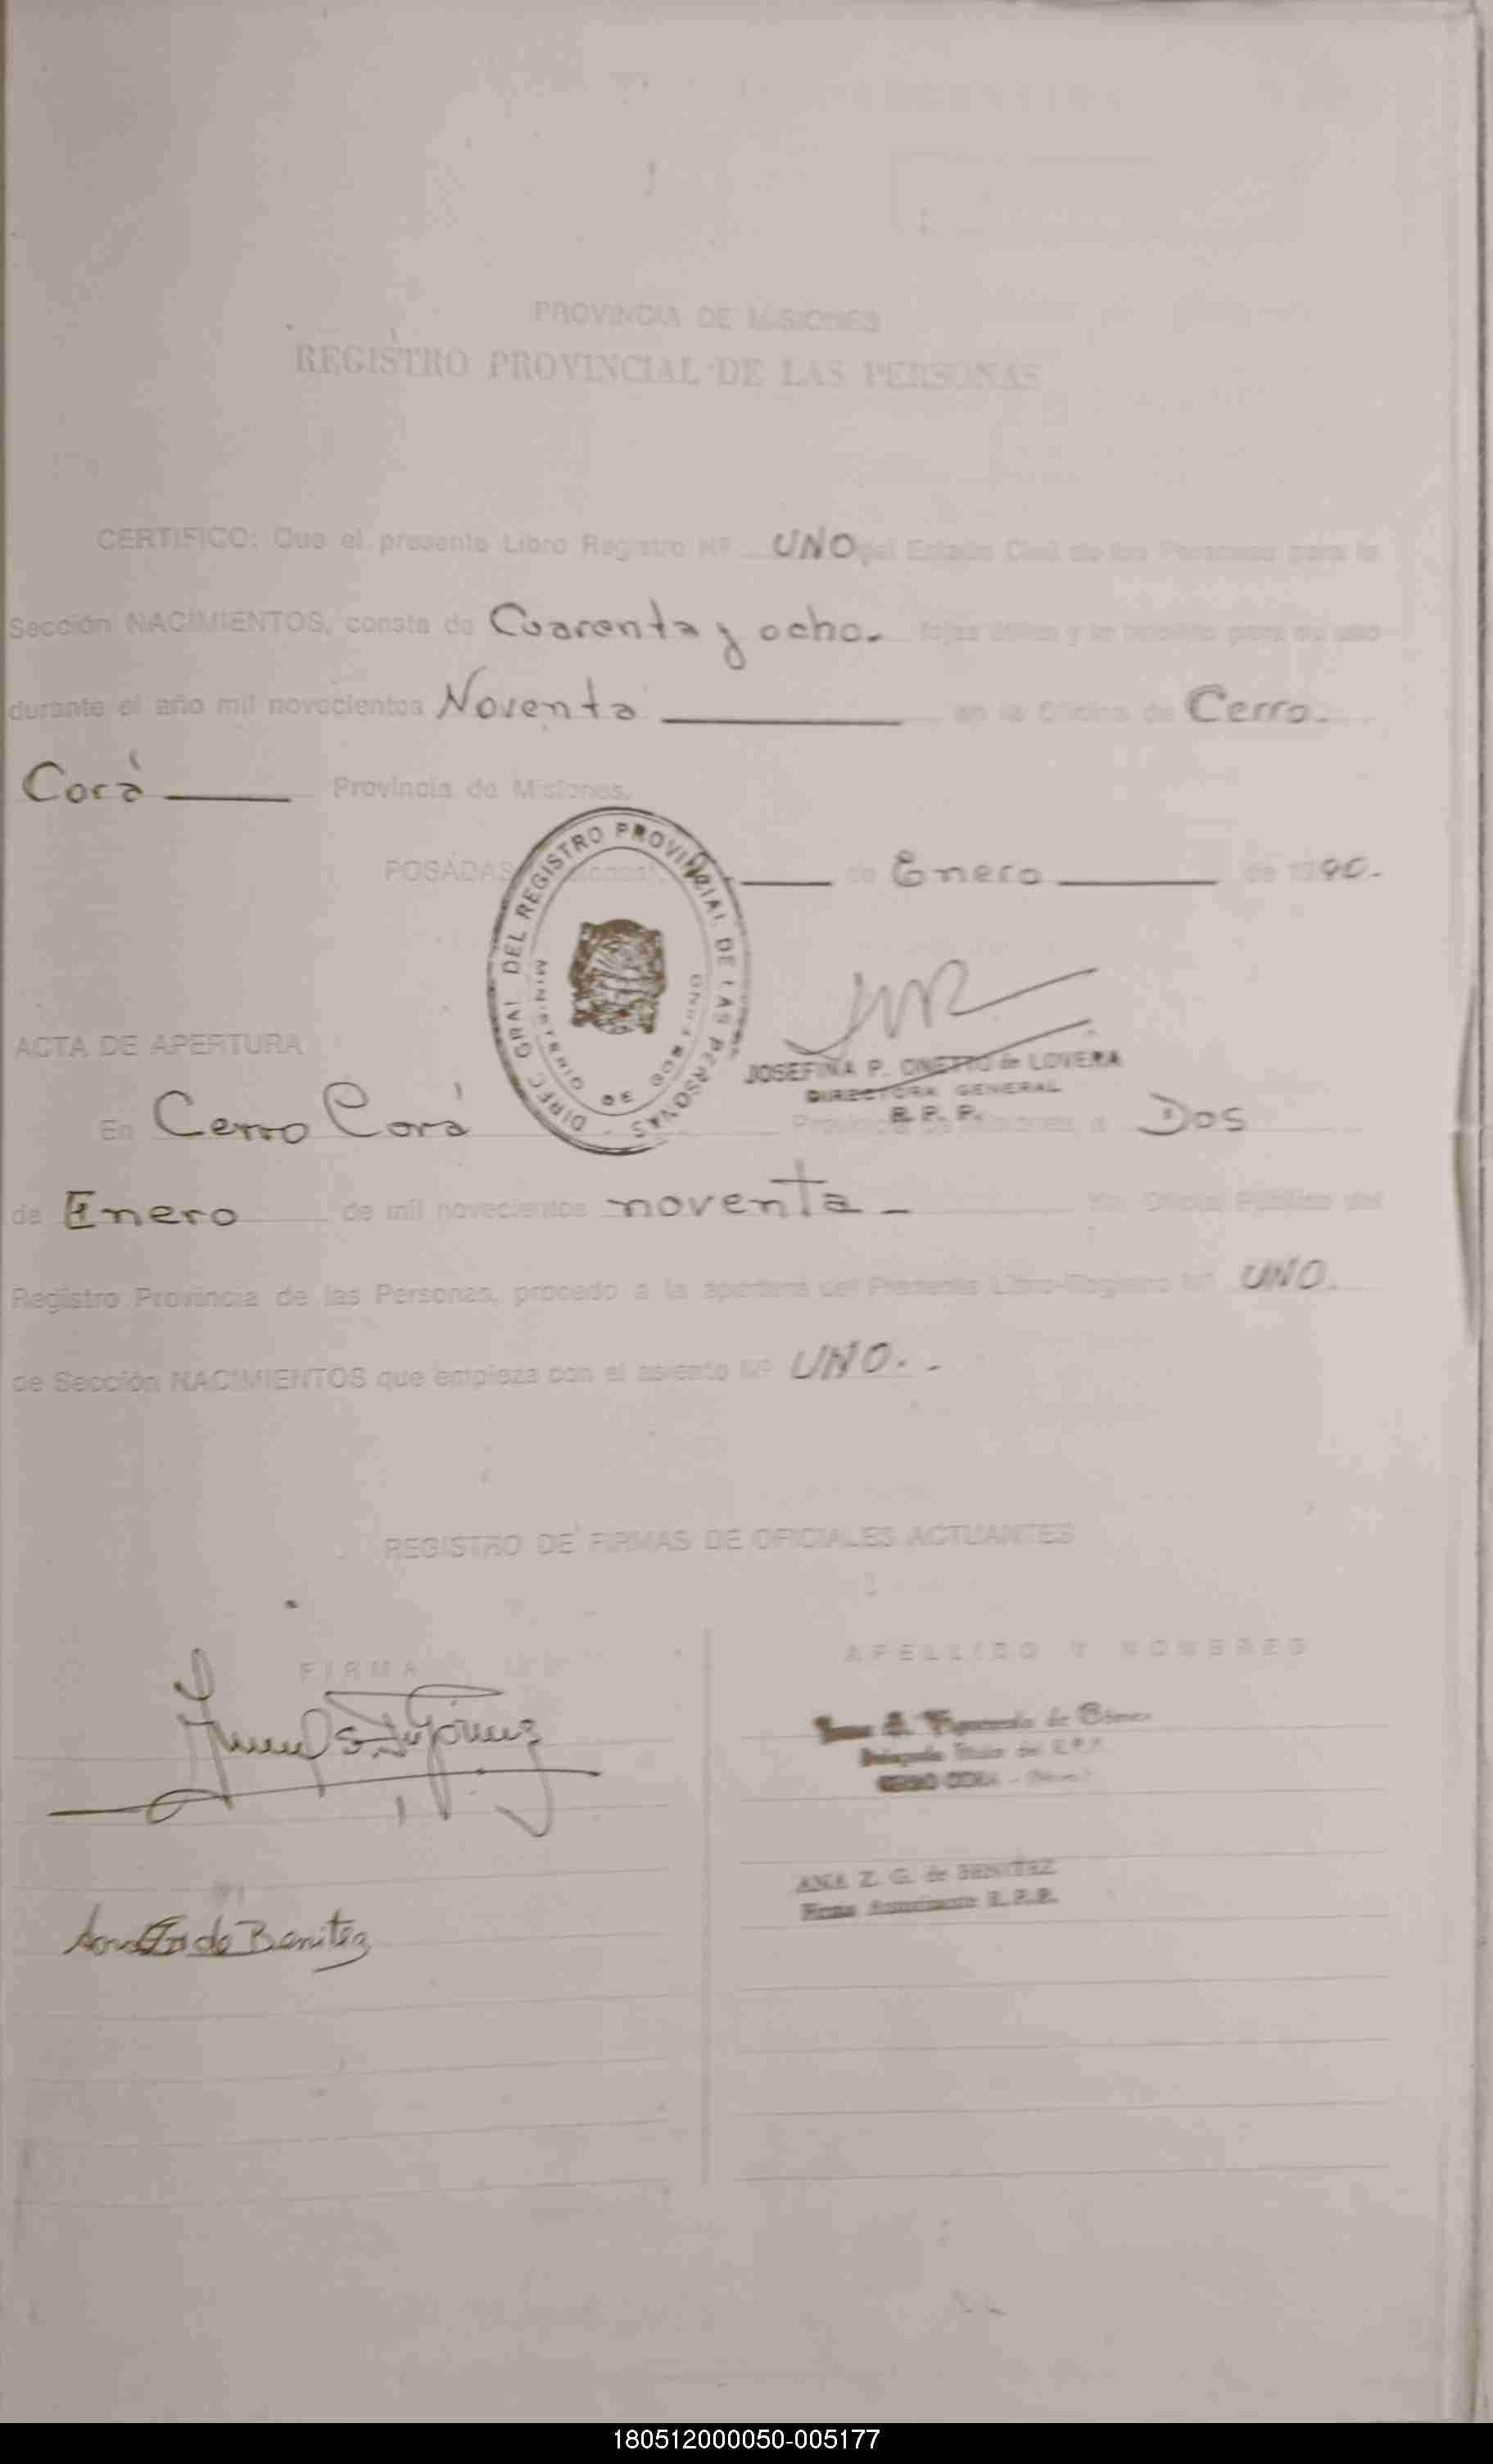 PROVINCIA DE MISIONES
REGISTRO PROVINCIAL DE LAS PERSONAS
CERTIFICO: Que el presente Libro Registro Nº UNO del Estado Civil de las Personas para la
Sección NACIMIENTOS, consta de Cuarenta y ocho. fojas útiles y lo habilito para su uso
durante el año mil novecientos Noventa en la Oficina de Cerro.
Corá Provincia de Misiones.
POSADAS de Enero de 1990.-
DIREC. GRAL. DEL REGISTRO PROVINCIAL DE LAS PERSONAS -
MINISTERIO DE GOBIERNO
JOSEFINA P. ONETTO de LOVERA
DIRECTORA GENERAL
R. P. P.
ACTA DE APERTURA
En Cerro Corá Provincia de Misiones, a Dos
de Enero de mil novecientos noventa - Yo, Oficial Público del
Registro Provincia de las Personas, procedo a la apertura del Presente Libro-Registro Nº UNO.
de Sección NACIMIENTOS que empieza con el asiento Nº UNO. -
REGISTRO DE FIRMAS DE OFICIALES ACTUANTES
FIRMA
APELLIDO Y NOMBRES
S. Figueredo de Gómez
Delegada Titular del R.P.P.
CERRO CORA
ANA Z. G. de BENITEZ
Firma Autorizante R.P.P.
de Benitez
180512000050-005177